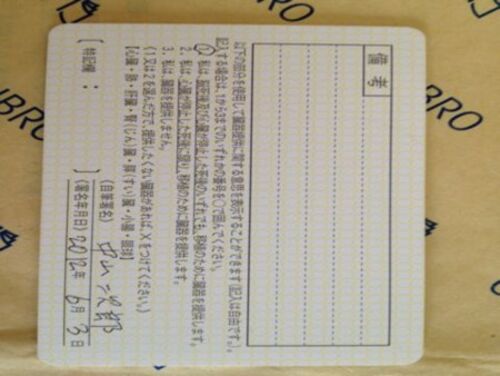 備考
以下の部分を使用して臓器提供に関する意思を表示することができます(記入は自由です。)。
記入する場合は、1から3までのいずれかの番号を○で囲んでください。
1. 私は、脳死後及び心臓が停止した死後のいずれでも、移植のために臓器を提供します。
2. 私は、心臓が停止した死後に限り、移植のために臓器を提供します。
3. 私は、臓器を提供しません。
《1又は2を選んだ方で、提供したくない臓器があれば、×をつけてください。》
【心臓・肺・肝臓・腎(じん)臓・膵(すい)臓・小腸・眼球】
〔特記欄: 〕
《自筆署名》 中山
《署名年月日》 2012年 6月 3日
BRO
UBRO
BRO